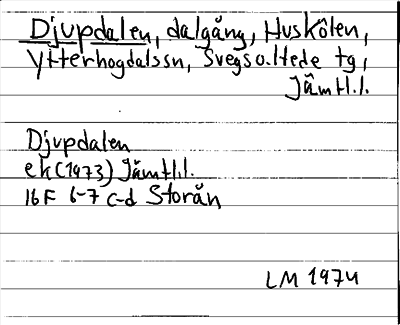 Djupdalen, dalgång, Huskölen,
Ytterhogdalssn, Svegs o. Hede tg,
Jämtl.l.
Djupdalen
ek(1973) Jämtl.l.
16F 6-7 c-d Storån
LM 1974